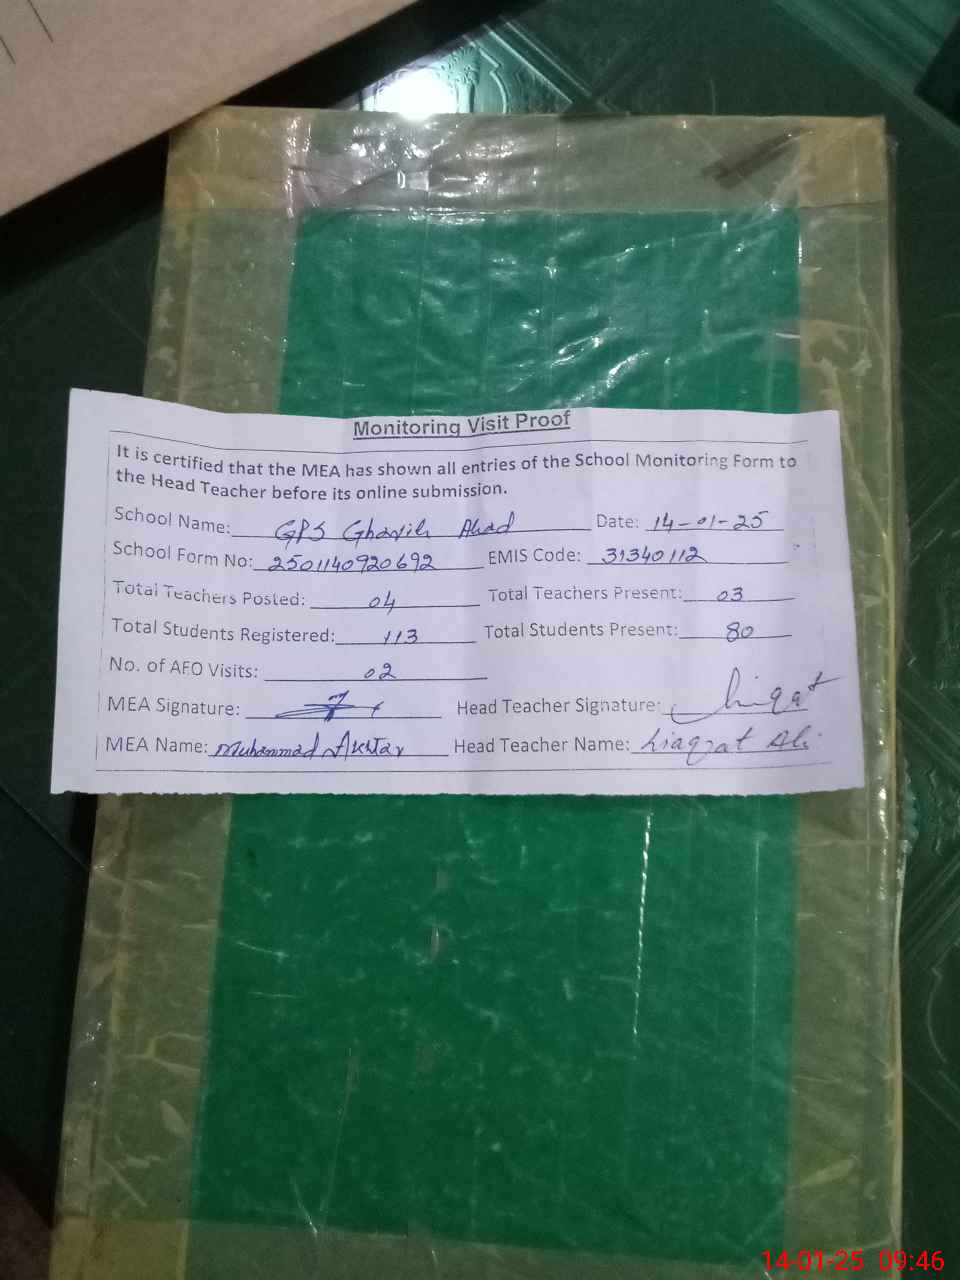 Monitoring Visit Proof
It is certified that the MEA has shown all entries of the School Monitoring Form to
the Head Teacher before its online submission.
School Name: GPS Gharib Abad Date: 14-01-25
School Form No: 2501140920692 EMIS Code: 31340112
Total Teachers Posted: 04 Total Teachers Present: 03
Total Students Registered: 113 Total Students Present: 80
No. of AEO Visits: 02
MEA Signature: Head Teacher Signature: Liaqat
MEA Name: Muhammad Akhtar Head Teacher Name: Liaqat Ali
14-01-25 09:46